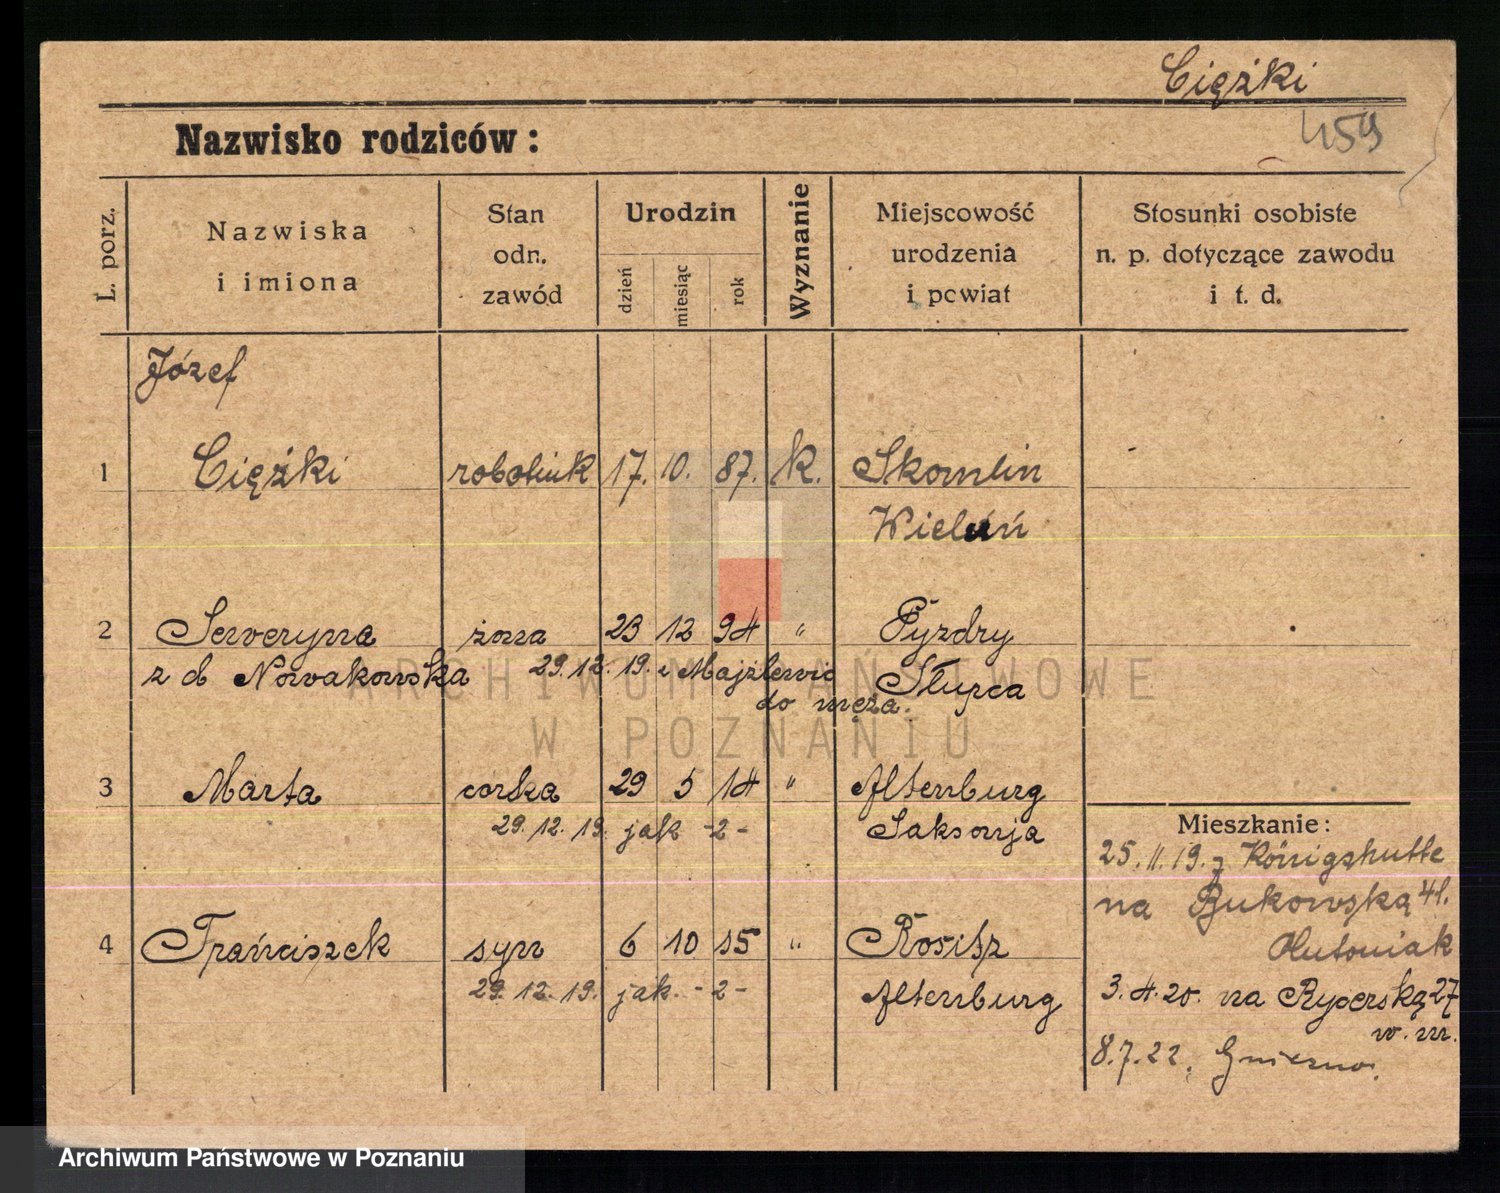 Ciężki
Nazwisko rodziców:
459
L. porz.
Nazwiska
i imiona
Stan
odn.
zawód
Urodzin
dzień
miesiąc
rok
Wyznanie
Miejscowość
urodzenia
i powiat
Stosunki osobiste
n. p. dotyczące zawodu
i t. d.
Józef
1 Ciężki robotnik 17. 10. 87. k. Skomlin
Wieluń
2 Seweryna żona 23 12 94 " Pyzdry
z d. Nowakowska 29.12.19. z
do męża. Słupca
3 Marta córka 29 5 14 " Altenburg
29.12.19. jak -2- Saksonja
Mieszkanie:
25.11.19. z Königshutte
na Bukowską 41.
4 Franciszek syn 6 10 15 " Rositz
29.12.19. jak. -2- Altenburg
3.4.20. na Rycerską 27
w. m.
8.7.22. Gniezno.
ARCHIWUM PAŃSTWOWE
W POZNANIU
Archiwum Państwowe w Poznaniu